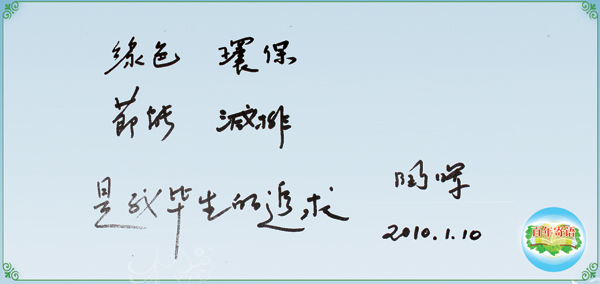 綠色 環保
節能 減排
是我毕生的追求
2010.1.10
百年寄语